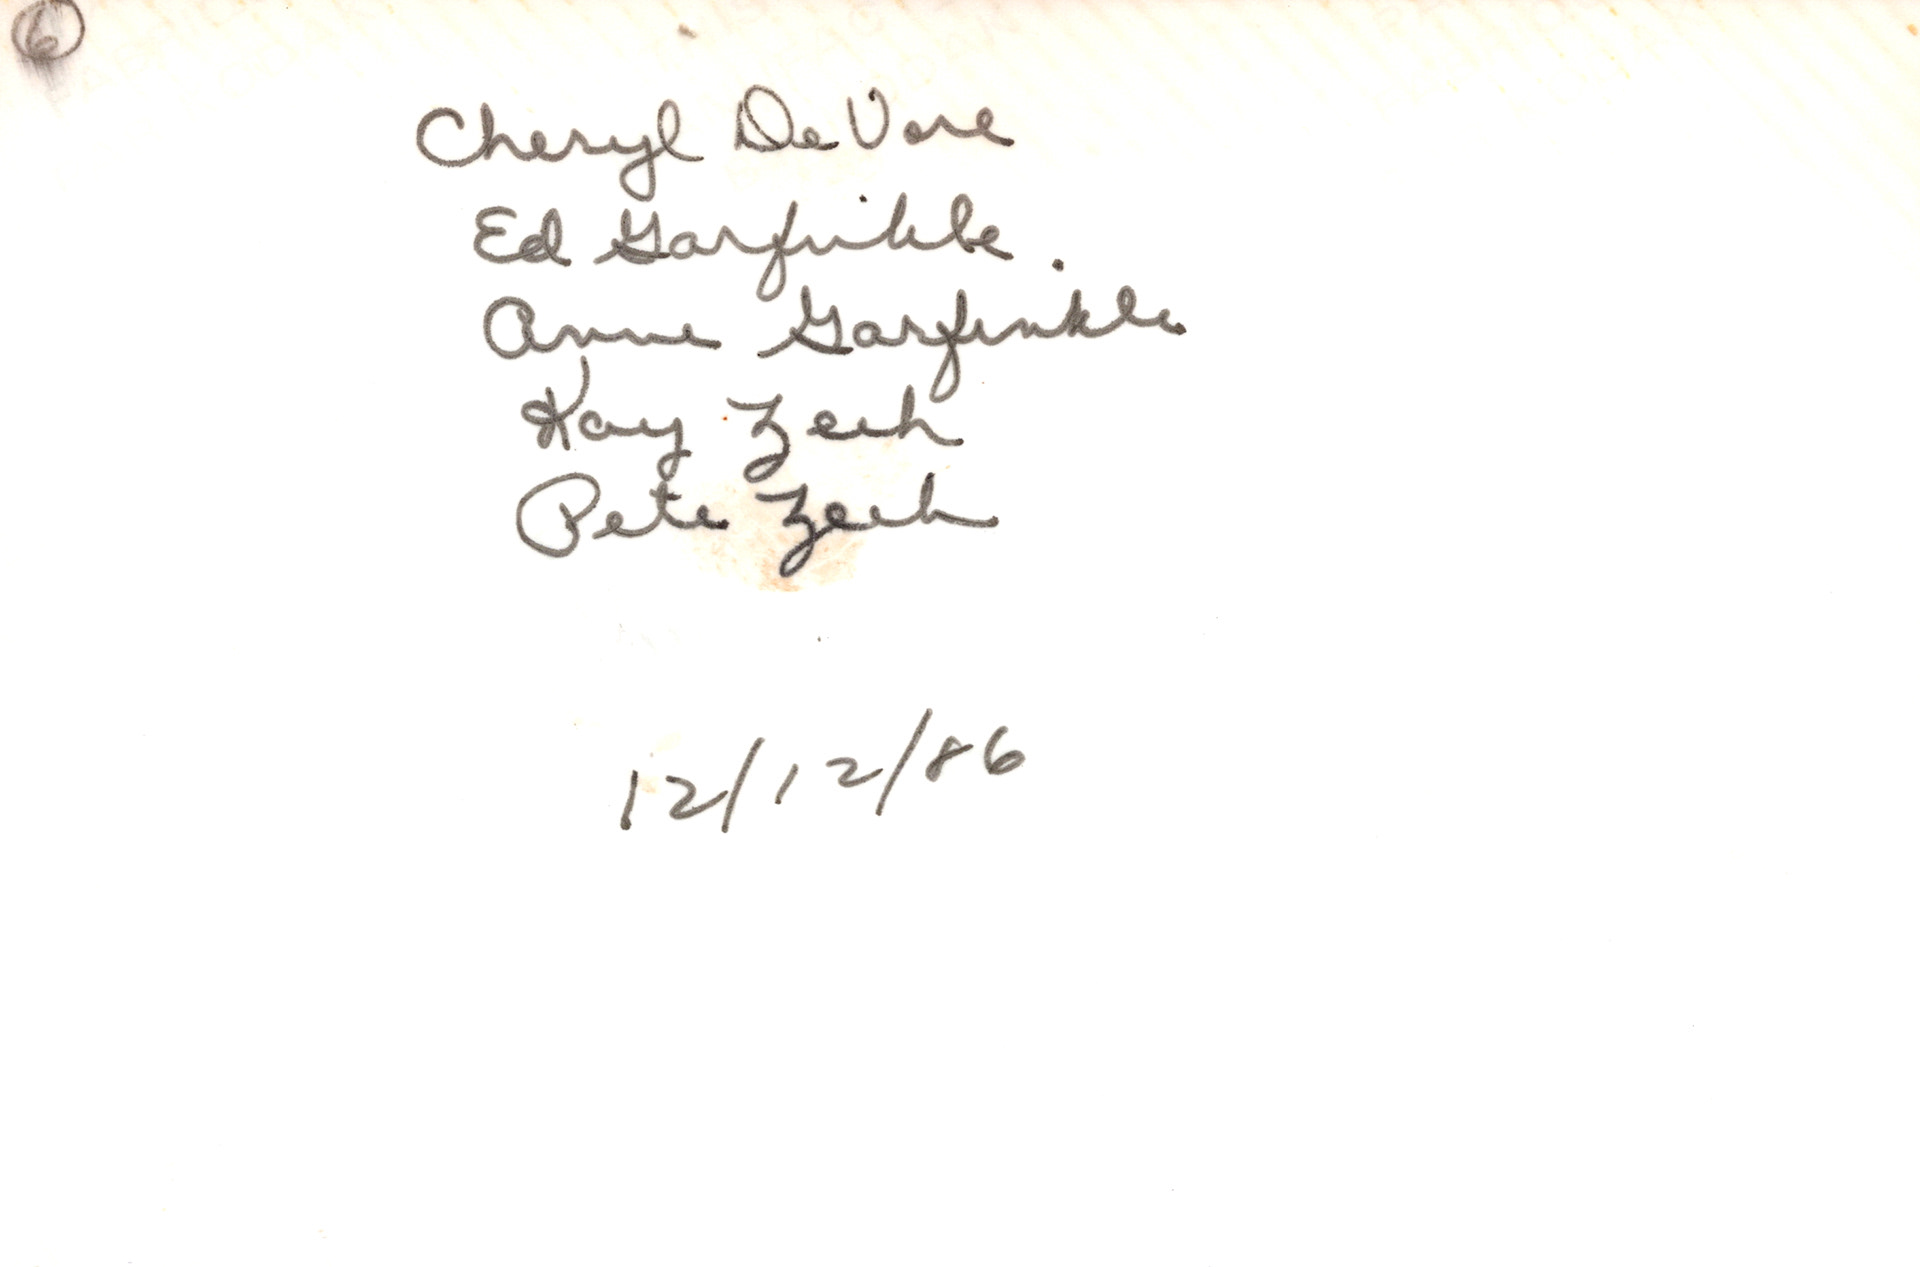 6
Cheryl DeVore
Ed Garfinkle
Anne Garfinkle
Kay Zech
Pete Zech
12/12/86